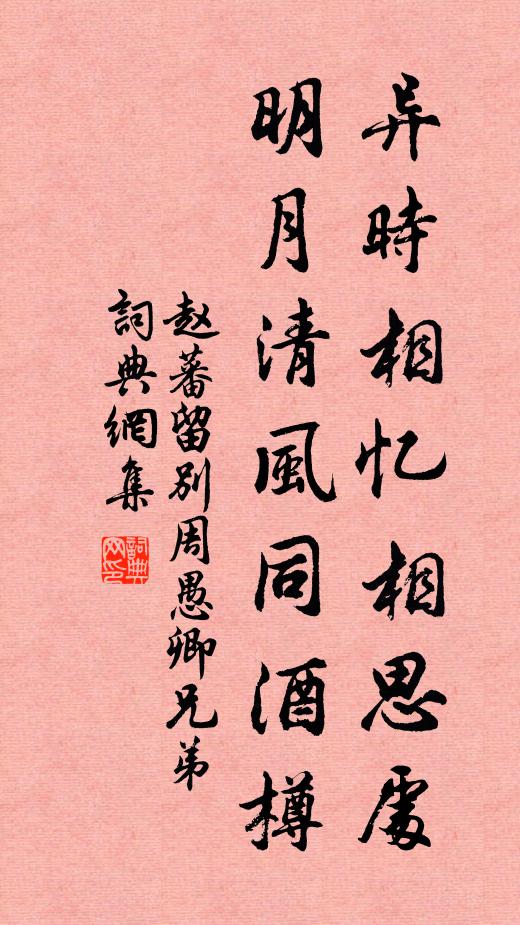 异時相忆相思處
明月清風同酒樽
赵蕃留别周愚卿兄弟
詞典網集
詞典网印